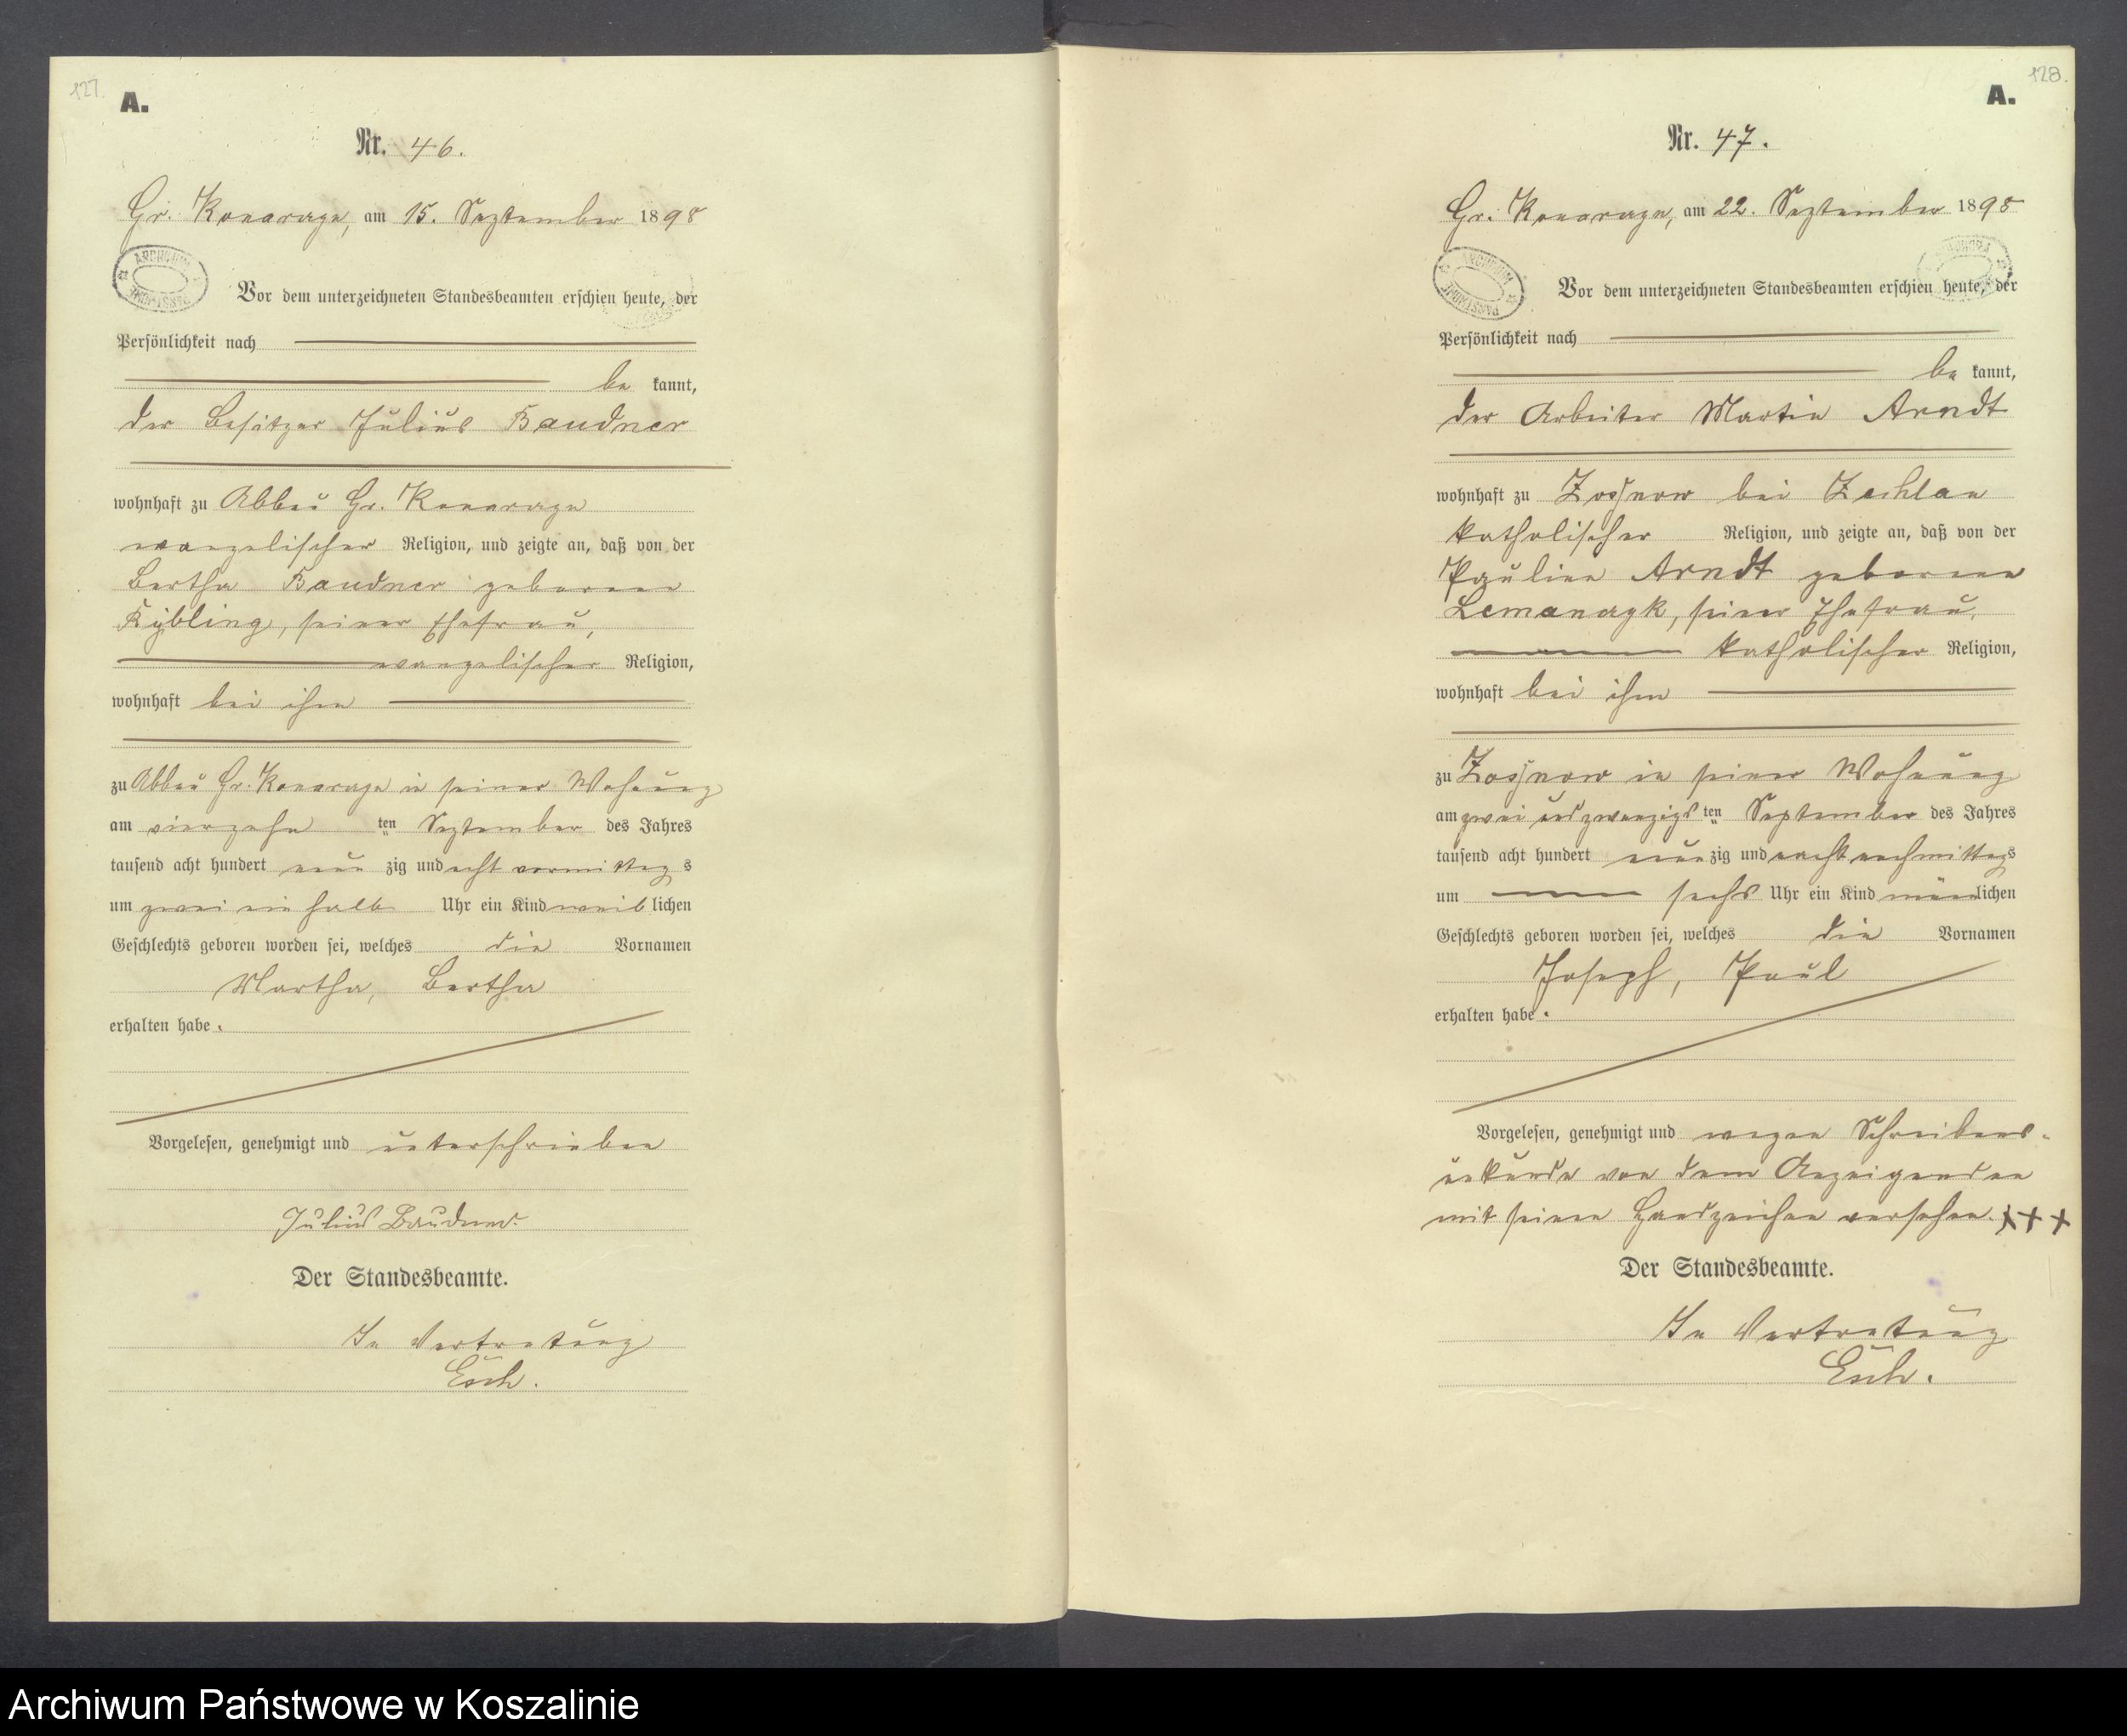 127.
A.
Nr. 46.
Gr. Konarczyn, am 15. September 1898
ARCHIWUM
Vor dem unterzeichneten Standesbeamten erschien heute, der
Persönlichkeit nach
be kannt,
der Besitzer Julius Baudner
wohnhaft zu Abbau Gr. Konarczyn
evangelischer Religion, und zeigte an, daß von der
Bertha Baudner geborene
Kybling, seiner Ehefrau,
evangelischer Religion,
wohnhaft bei ihm
zu Abbau Gr. Konarczyn in seiner Wohnung
am vierzehn ten September des Jahres
tausend acht hundert neun zig und acht vormittag s
um zwei ein halb Uhr ein Kind weib lichen
Geschlechts geboren worden sei, welches die Vornamen
Martha, Bertha
erhalten habe.
Vorgelesen, genehmigt und unterschrieben
Julius Baudner.
Der Standesbeamte.
In Vertretung
128.
A.
Nr. 47.
Gr. Konarczyn, am 22. September 1898
ARCHIWUM
Vor dem unterzeichneten Standesbeamten erschien heute, der
Persönlichkeit nach
be kannt,
der Arbeiter Martin Arndt
wohnhaft zu Zossnow bei Zechlau
katholischer Religion, und zeigte an, daß von der
Pauline Arndt geborene
Lemanczyk, seiner Ehefrau,
katholischer Religion,
wohnhaft bei ihm
zu Zossnow in seiner Wohnung
am zwei und zwanzigs ten September des Jahres
tausend acht hundert neun zig und acht nachmittags
um sechs Uhr ein Kind männlichen
Geschlechts geboren worden sei, welches die Vornamen
Joseph, Paul
erhalten habe.
Vorgelesen, genehmigt und wegen Schreibens-
unkunde von dem Anzeigenden
mit seinen Handzeichen versehen. +++
Der Standesbeamte.
In Vertretung
Archiwum Państwowe w Koszalinie